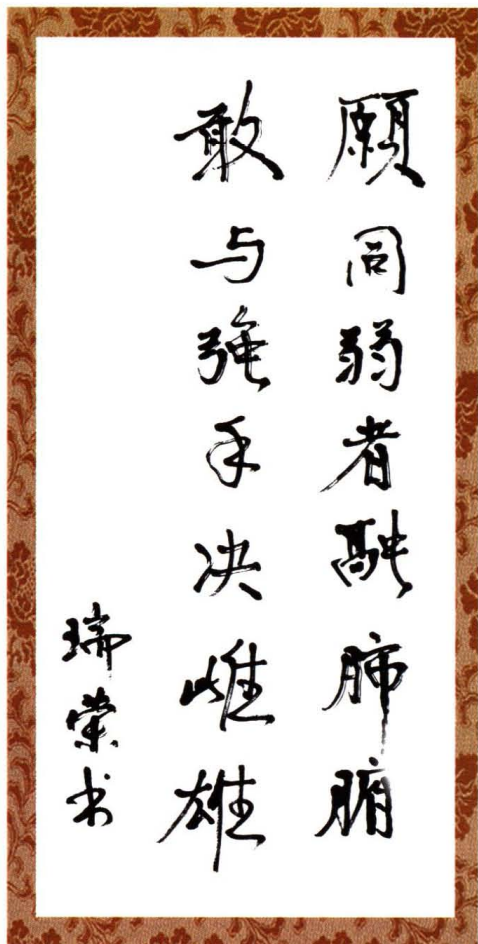 願同弱者融肺腑
敢与強手决雌雄
瑞荣书